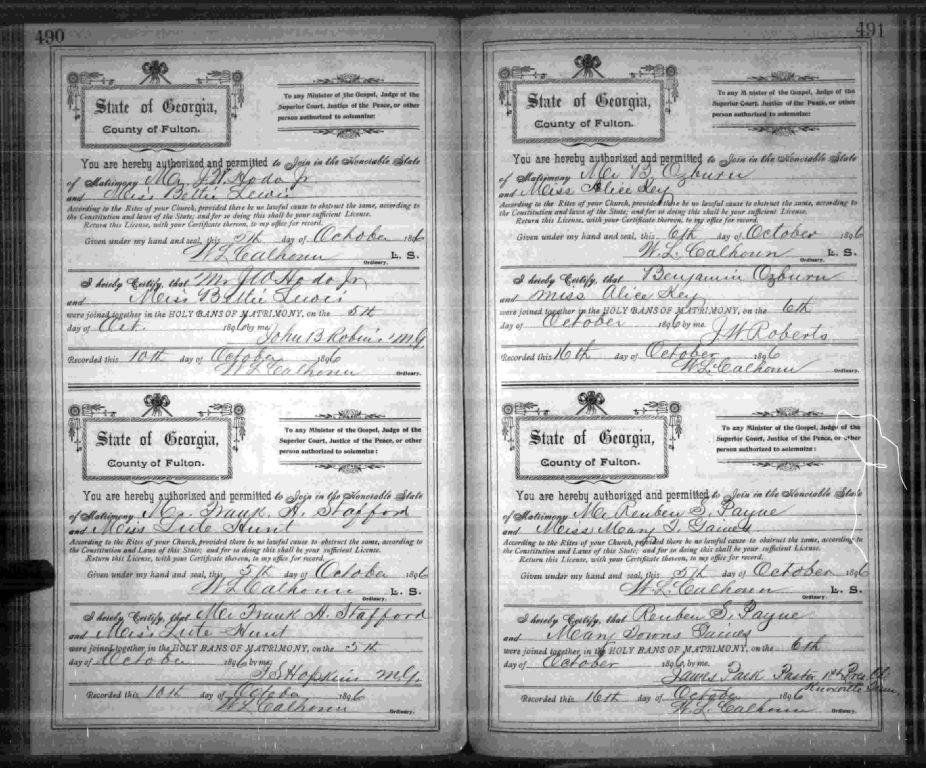 490
State of Georgia,
County of Fulton.
To any Minister of the Gospel, Judge of the
Superior Court, Justice of the Peace, or other
person authorized to solemnize:
You are hereby authorized and permitted to Join in the Honorable State
of Matrimony Mr J.W. Hodo Jr
and Miss Bettie Lewis
According to the Rites of your Church, provided there be no lawful cause to obstruct the same, according to
the Constitution and laws of the State; and for so doing this shall be your sufficient License.
Return this License, with your Certificate thereon, to my office for record.
Given under my hand and seal, this 5th day of October 1896
W L Calhoun L. S.
Ordinary.
I hereby Certify, that Mr J W Hodo Jr
and Miss Bettie Lewis
were joined together in the HOLY BANS OF MATRIMONY, on the 5th
day of Oct. 1896 by me.
John B Robins M.G.
Recorded this 10th day of October 1896
W L Calhoun Ordinary.
State of Georgia,
County of Fulton.
To any Minister of the Gospel, Judge of the
Superior Court, Justice of the Peace, or other
person authorized to solemnize:
You are hereby authorized and permitted to Join in the Honorable State
of Matrimony Mr. Frank. H. Stafford
and Miss Lute Hunt
According to the Rites of your Church, provided there be no lawful cause to obstruct the same, according to
the Constitution and Laws of this State; and for so doing this shall be your sufficient License.
Return this License, with your Certificate thereon, to my office for record.
Given under my hand and seal, this 5th day of October 1896
W L Calhoun L. S.
Ordinary.
I hereby Certify, that Mr Frank H. Stafford
and Miss Lute Hunt
were joined together in the HOLY BANS OF MATRIMONY, on the 5th
day of October 1896 by me.
Hopkins M.G.
Recorded this 10th day of October 1896
W L Calhoun Ordinary.
491
State of Georgia,
County of Fulton.
To any Minister of the Gospel, Judge of the
Superior Court, Justice of the Peace, or other
person authorized to solemnize:
You are hereby authorized and permitted to Join in the Honorable State
of Matrimony Mr B. Ozburn
and Miss Alice Key
According to the Rites of your Church, provided there be no lawful cause to obstruct the same, according to
the Constitution and laws of the State; and for so doing this shall be your sufficient License.
Return this License, with your Certificate thereon, to my office for record.
Given under my hand and seal, this 6th day of October 1896
W. L. Calhoun L. S.
Ordinary.
I hereby Certify, that Benjamin Ozburn
and Miss Alice Key
were joined together in the HOLY BANS OF MATRIMONY, on the 6th
day of October 1896 by me.
J. W. Roberts
Recorded this 16th day of October 1896
W L Calhoun Ordinary.
State of Georgia,
County of Fulton.
To any Minister of the Gospel, Judge of the
Superior Court, Justice of the Peace, or other
person authorized to solemnize:
You are hereby authorized and permitted to Join in the Honorable State
of Matrimony Mr Reuben S. Payne
and Miss Mary T Gaines
According to the Rites of your Church, provided there be no lawful cause to obstruct the same, according to
the Constitution and Laws of this State; and for so doing this shall be your sufficient License.
Return this License, with your Certificate thereon, to my office for record.
Given under my hand and seal, this 5th day of October 1896
W. L. Calhoun L. S.
Ordinary.
I hereby Certify, that Reuben S. Payne
and Mary Towns Gaines
were joined together in the HOLY BANS OF MATRIMONY, on the 6th
day of October 1896, by me.
James Park Pastor 1st Pres Ch
Knoxville Tenn.
Recorded this 16th day of October 1896
W. L. Calhoun Ordinary.